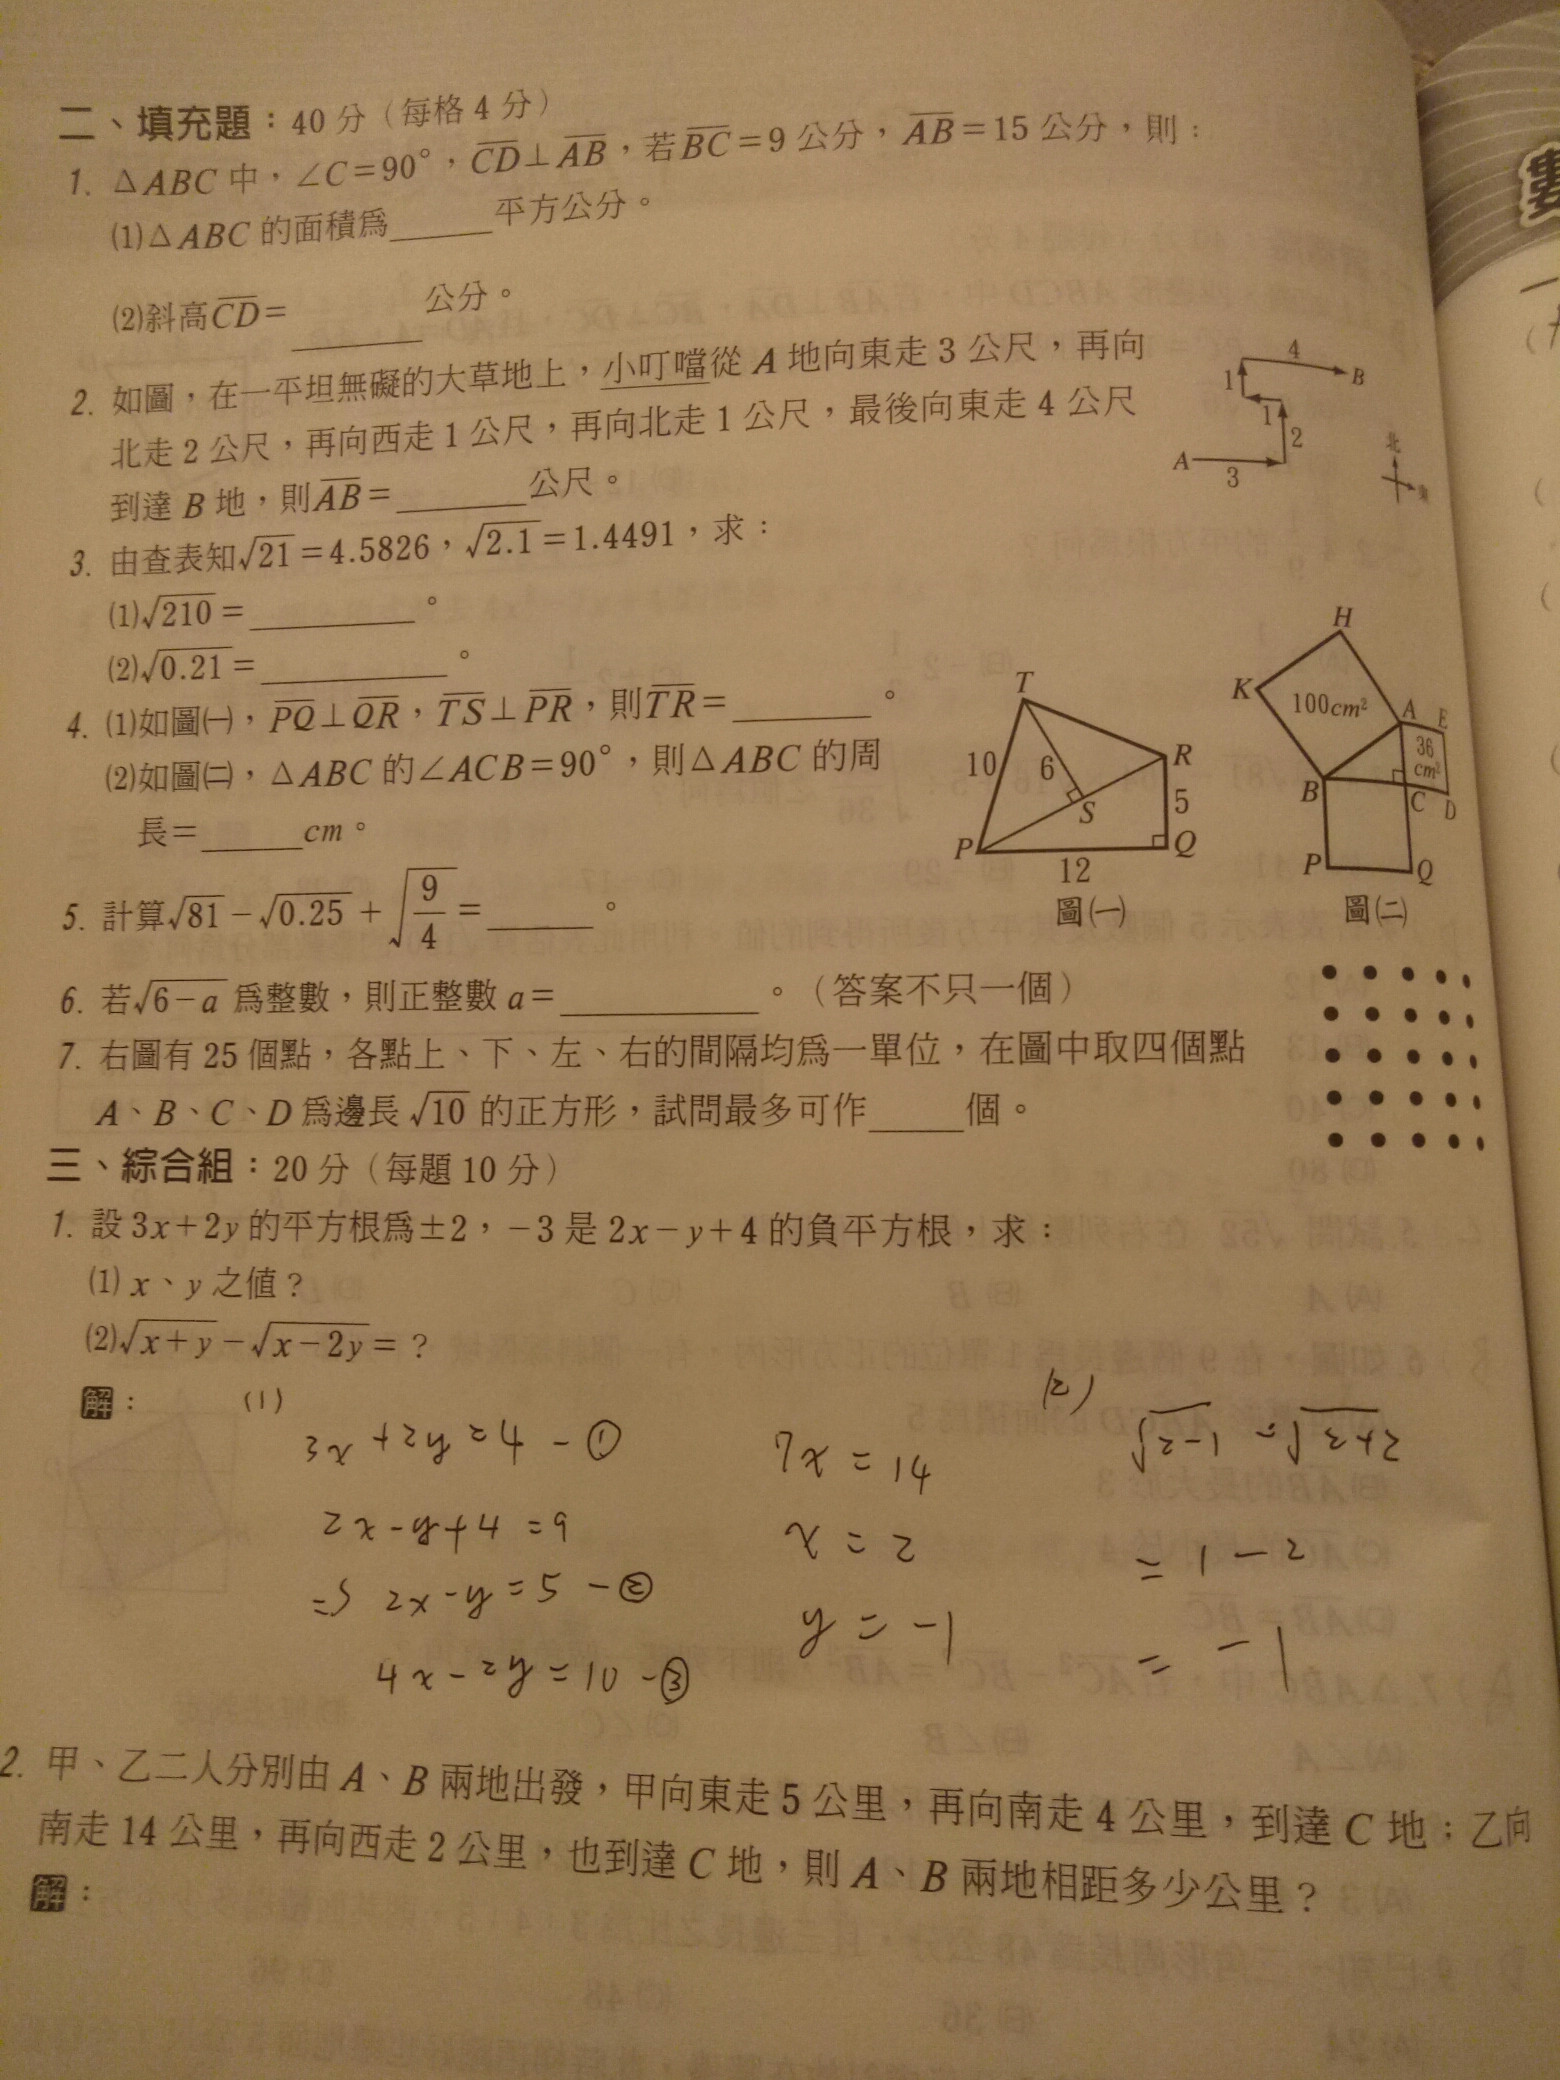 二、填充題：40分（每格4分）
1. △ABC中，∠C=90°，CD⊥AB，若BC=9公分，AB=15公分，則：
(1)△ABC的面積為＿＿＿平方公分。
(2)斜高CD=＿＿＿公分。
2. 如圖，在一平坦無礙的大草地上，小叮噹從A地向東走3公尺，再向
北走2公尺，再向西走1公尺，再向北走1公尺，最後向東走4公尺
到達B地，則AB=＿＿＿公尺。
4
B
1
1
2
A
3
北
東
3. 由查表知√21=4.5826，√2.1=1.4491，求：
(1)√210=＿＿＿。
(2)√0.21=＿＿＿。
4. (1)如圖㈠，PQ⊥QR，TS⊥PR，則TR=＿＿＿。
(2)如圖㈡，△ABC的∠ACB=90°，則△ABC的周
長=＿＿＿cm。
T
10
6
R
S
5
P
Q
12
圖㈠
H
K
100cm²
A
E
36
cm²
B
C
D
P
Q
圖㈡
5. 計算√81-√0.25+√(9/4)=＿＿＿。
6. 若√6-a為整數，則正整數a=＿＿＿。（答案不只一個）
7. 右圖有25個點，各點上、下、左、右的間隔均為一單位，在圖中取四個點
A、B、C、D為邊長√10的正方形，試問最多可作＿＿＿個。
三、綜合組：20分（每題10分）
1. 設3x+2y的平方根為±2，-3是2x-y+4的負平方根，求：
(1) x、y之值？
(2)√x+y-√x-2y=？
解：
(1)
3x+2y=4-①
2x-y+4=9
=> 2x-y=5-②
4x-2y=10-③
7x=14
x=2
y=-1
(2)
=1-2
=-1
2. 甲、乙二人分別由A、B兩地出發，甲向東走5公里，再向南走4公里，到達C地；乙向
南走14公里，再向西走2公里，也到達C地，則A、B兩地相距多少公里？
解：